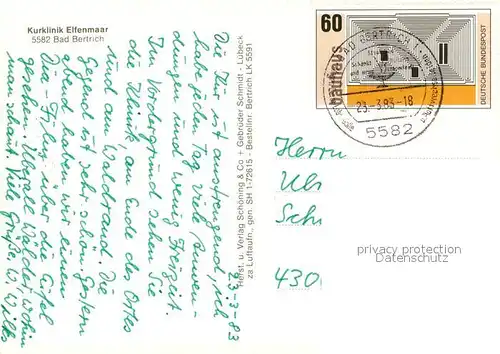 Kurklinik Elfenmaar
5582 Bad Bertrich
23-3-83
Die Kur ist anstrengend, ich
habe jeden Tag viel Anwen-
dungen und wenig Freizeit.
Im Vordergrund sehen Sie
die Klinik, am Ende des Ortes
und am Waldrand. Die
Gegend ist sehr schön. Gestern
abend haben wir einen
Dia-Film über die Eifel
gesehen. Überall Wälder, wohin
man schaut. Viele Grüße, W.
Herst. u. Verlag Schöning & Co + Gebrüder Schmidt - Lübeck
za Luftaufn., gen. SH 1-72615 - Bestellnr. Bertrich LK 5591
60
bauhaus
DEUTSCHE BUNDESPOST
BAD BERTRICH 1
23.-3.83-18
5582
Herrn
Uli
430
privacy protection
Datenschutz